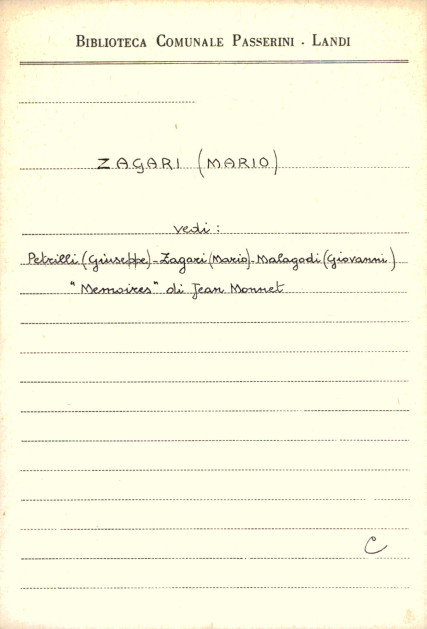 BIBLIOTECA COMUNALE PASSERINI - LANDI
ZAGARI (MARIO)
vedi:
Petrilli (Giuseppe) - Zagari (Mario) - Malagodi (Giovanni)
"Memoires" di Jean Monnet
C